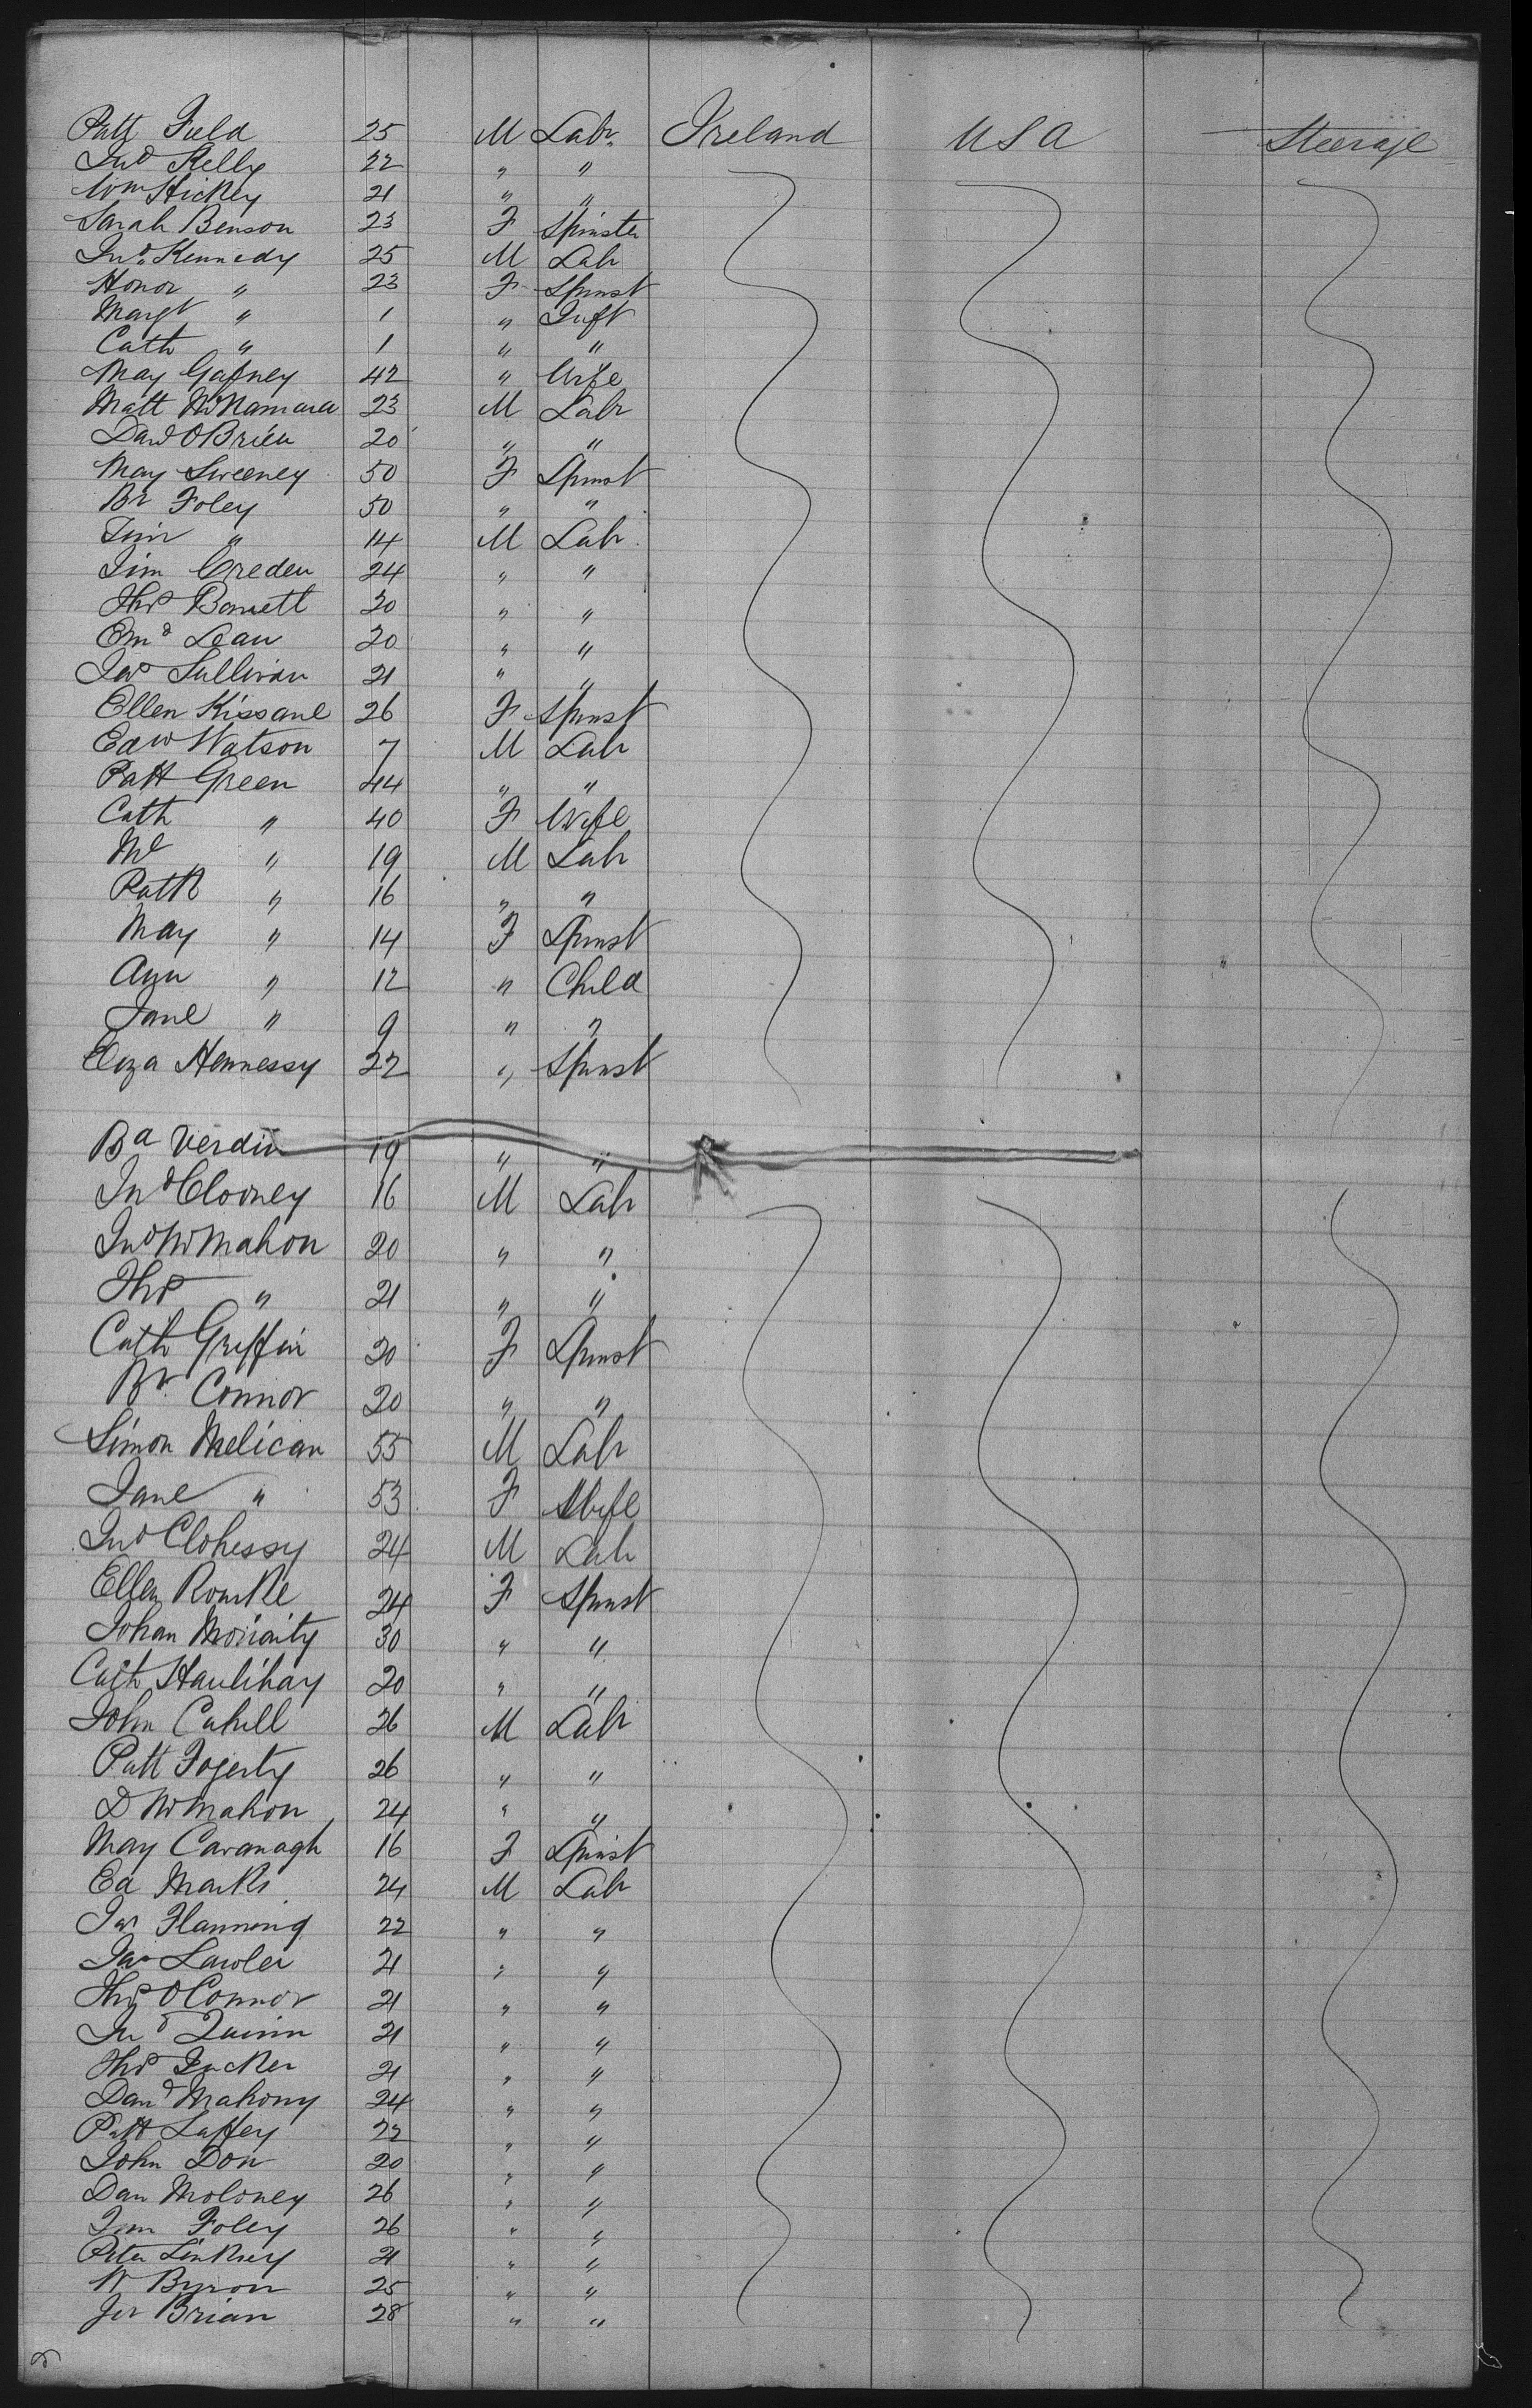 Patt Field 25 M Labr. Ireland USA Steerage
Jno Kelly 22 " "
Wm Hickey 21 " "
Sarah Benson 23 F Spinster
Jno. Kennedy 25 M Labr
Honor " 23 F Spinst
Margt " 1 " Inft
Cath " 1 " "
May Gafney 42 " Wife
Matt McNamara 23 M Labr
Danl O Brien 20 " "
May Sweeney 50 F Spinst
Br Foley 50 " "
Tim " 14 M Labr
Tim Creden 24 " "
Thos Barrett 20 " "
Emd Lean 20 " "
Jas Sullivan 21 " "
Ellen Kissane 26 F Spinst
Edw Watson 7 M Labr
Patt Green 44 " "
Cath " 40 F Wife
Ml " 19 M Labr
Patk " 16 " "
May " 14 F Spinst
Ann " 12 " Child
Jane " 9 " "
Eliza Hennessy 22 " Spinst
Ba Verdin 19 " "
Jno Clooney 16 M Labr
Jno McMahon 20 " "
Thos " 21 " "
Cath Griffin 20 F Spinst
Br. Connor 20 " "
Simon Melican 55 M Labr
Jane " 53 F Wife
Jno Clohessy 24 M Labr
Ellen Rourke 24 F Spinst
Johan Moriarity 30 " "
Cath Haulihay 20 " "
John Cahill 26 M Labr
Patt Fogerty 26 " "
D McMahon 24 " "
May Cavanagh 16 F Spinst
Ed Marks 24 M Labr
Jas Flanning 22 " "
Jas Lawler 21 " "
Thos O Connor 21 " "
Jno Quinn 21 " "
Thos Tucker 21 " "
Danl Mahony 24 " "
Patt Laffey 22 " "
John Don 20 " "
Dan Moloney 26 " "
Tim Foley 26 " "
Peter 21 " "
W Byron 25 " "
Jer Brian 28 " "